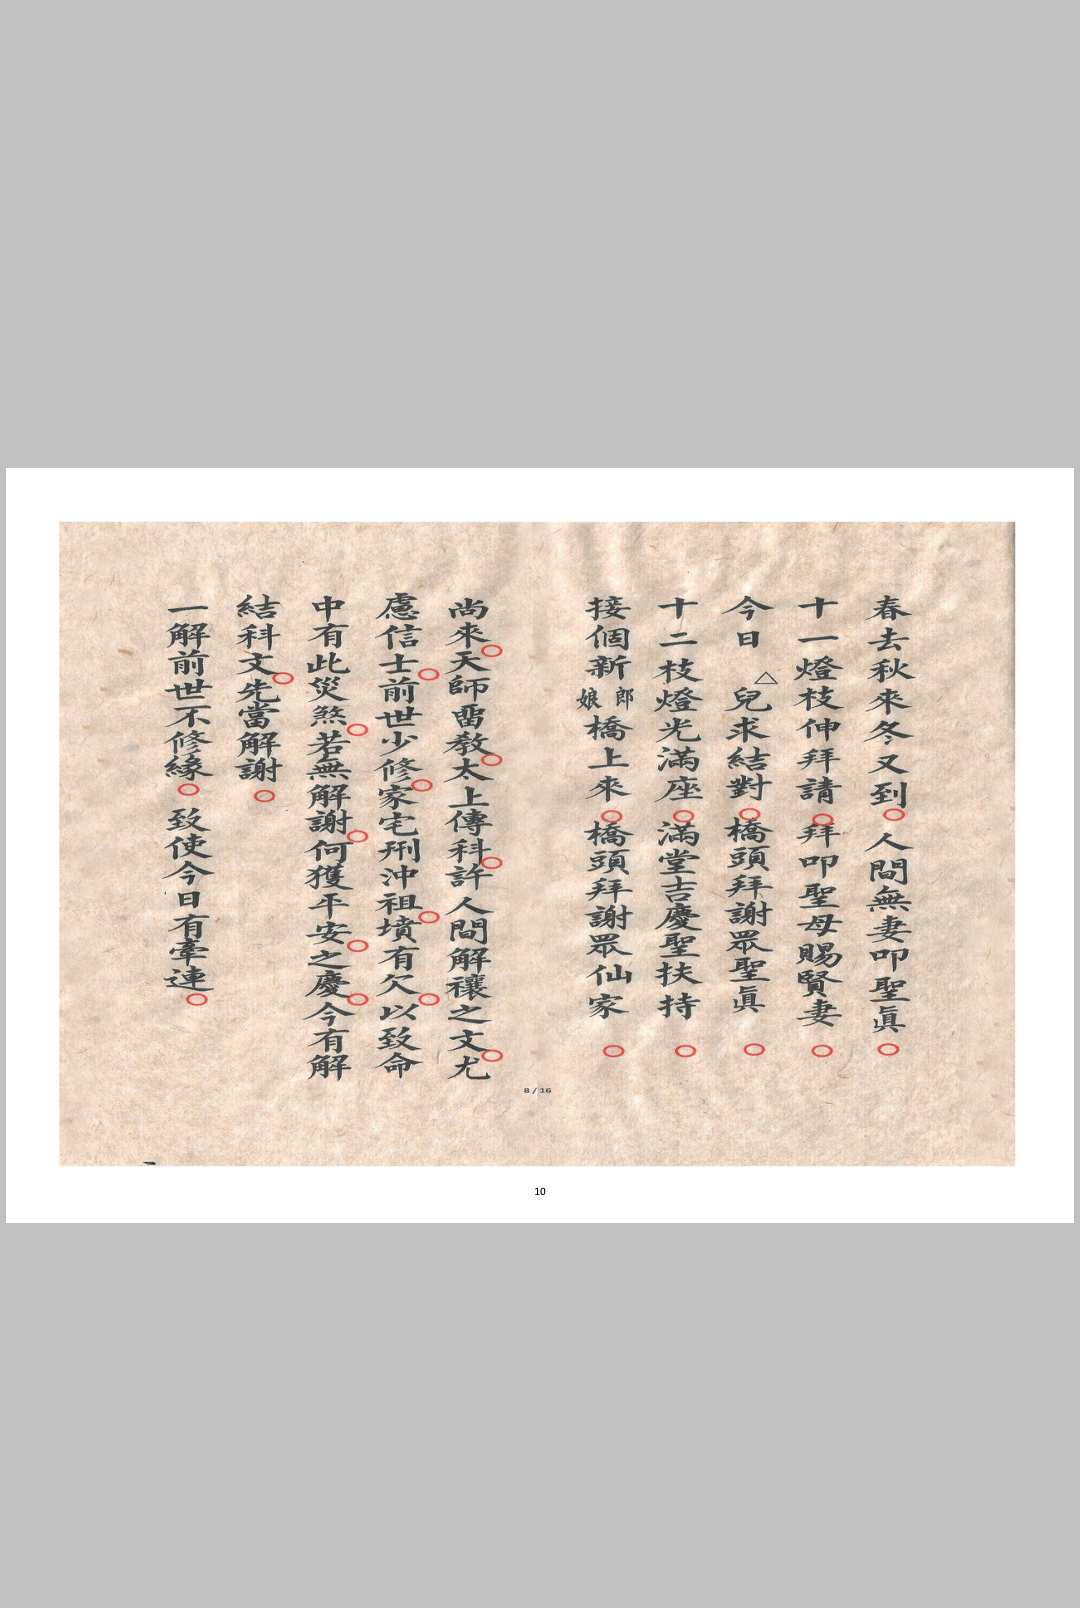 春去秋來冬又到○人間無妻叩聖眞○
十一燈枝伸拜請○拜叩聖母賜賢妻○
今日△兒求結對○橋頭拜謝眾聖眞○
十二枝燈光滿座○滿堂吉慶聖扶持○
接個新郎娘橋上來○橋頭拜謝眾仙家○
尚來○天師畱教○太上傳科○許人間解禳之文○尤
慮信士○前世少修○家宅刑沖祖○墳有欠○以致命
中有此災煞○若無解謝○何獲平安○之慶○今有解
結科文○先當解謝○
一解前世不修緣○致使今日有牽連○
8 / 16
10